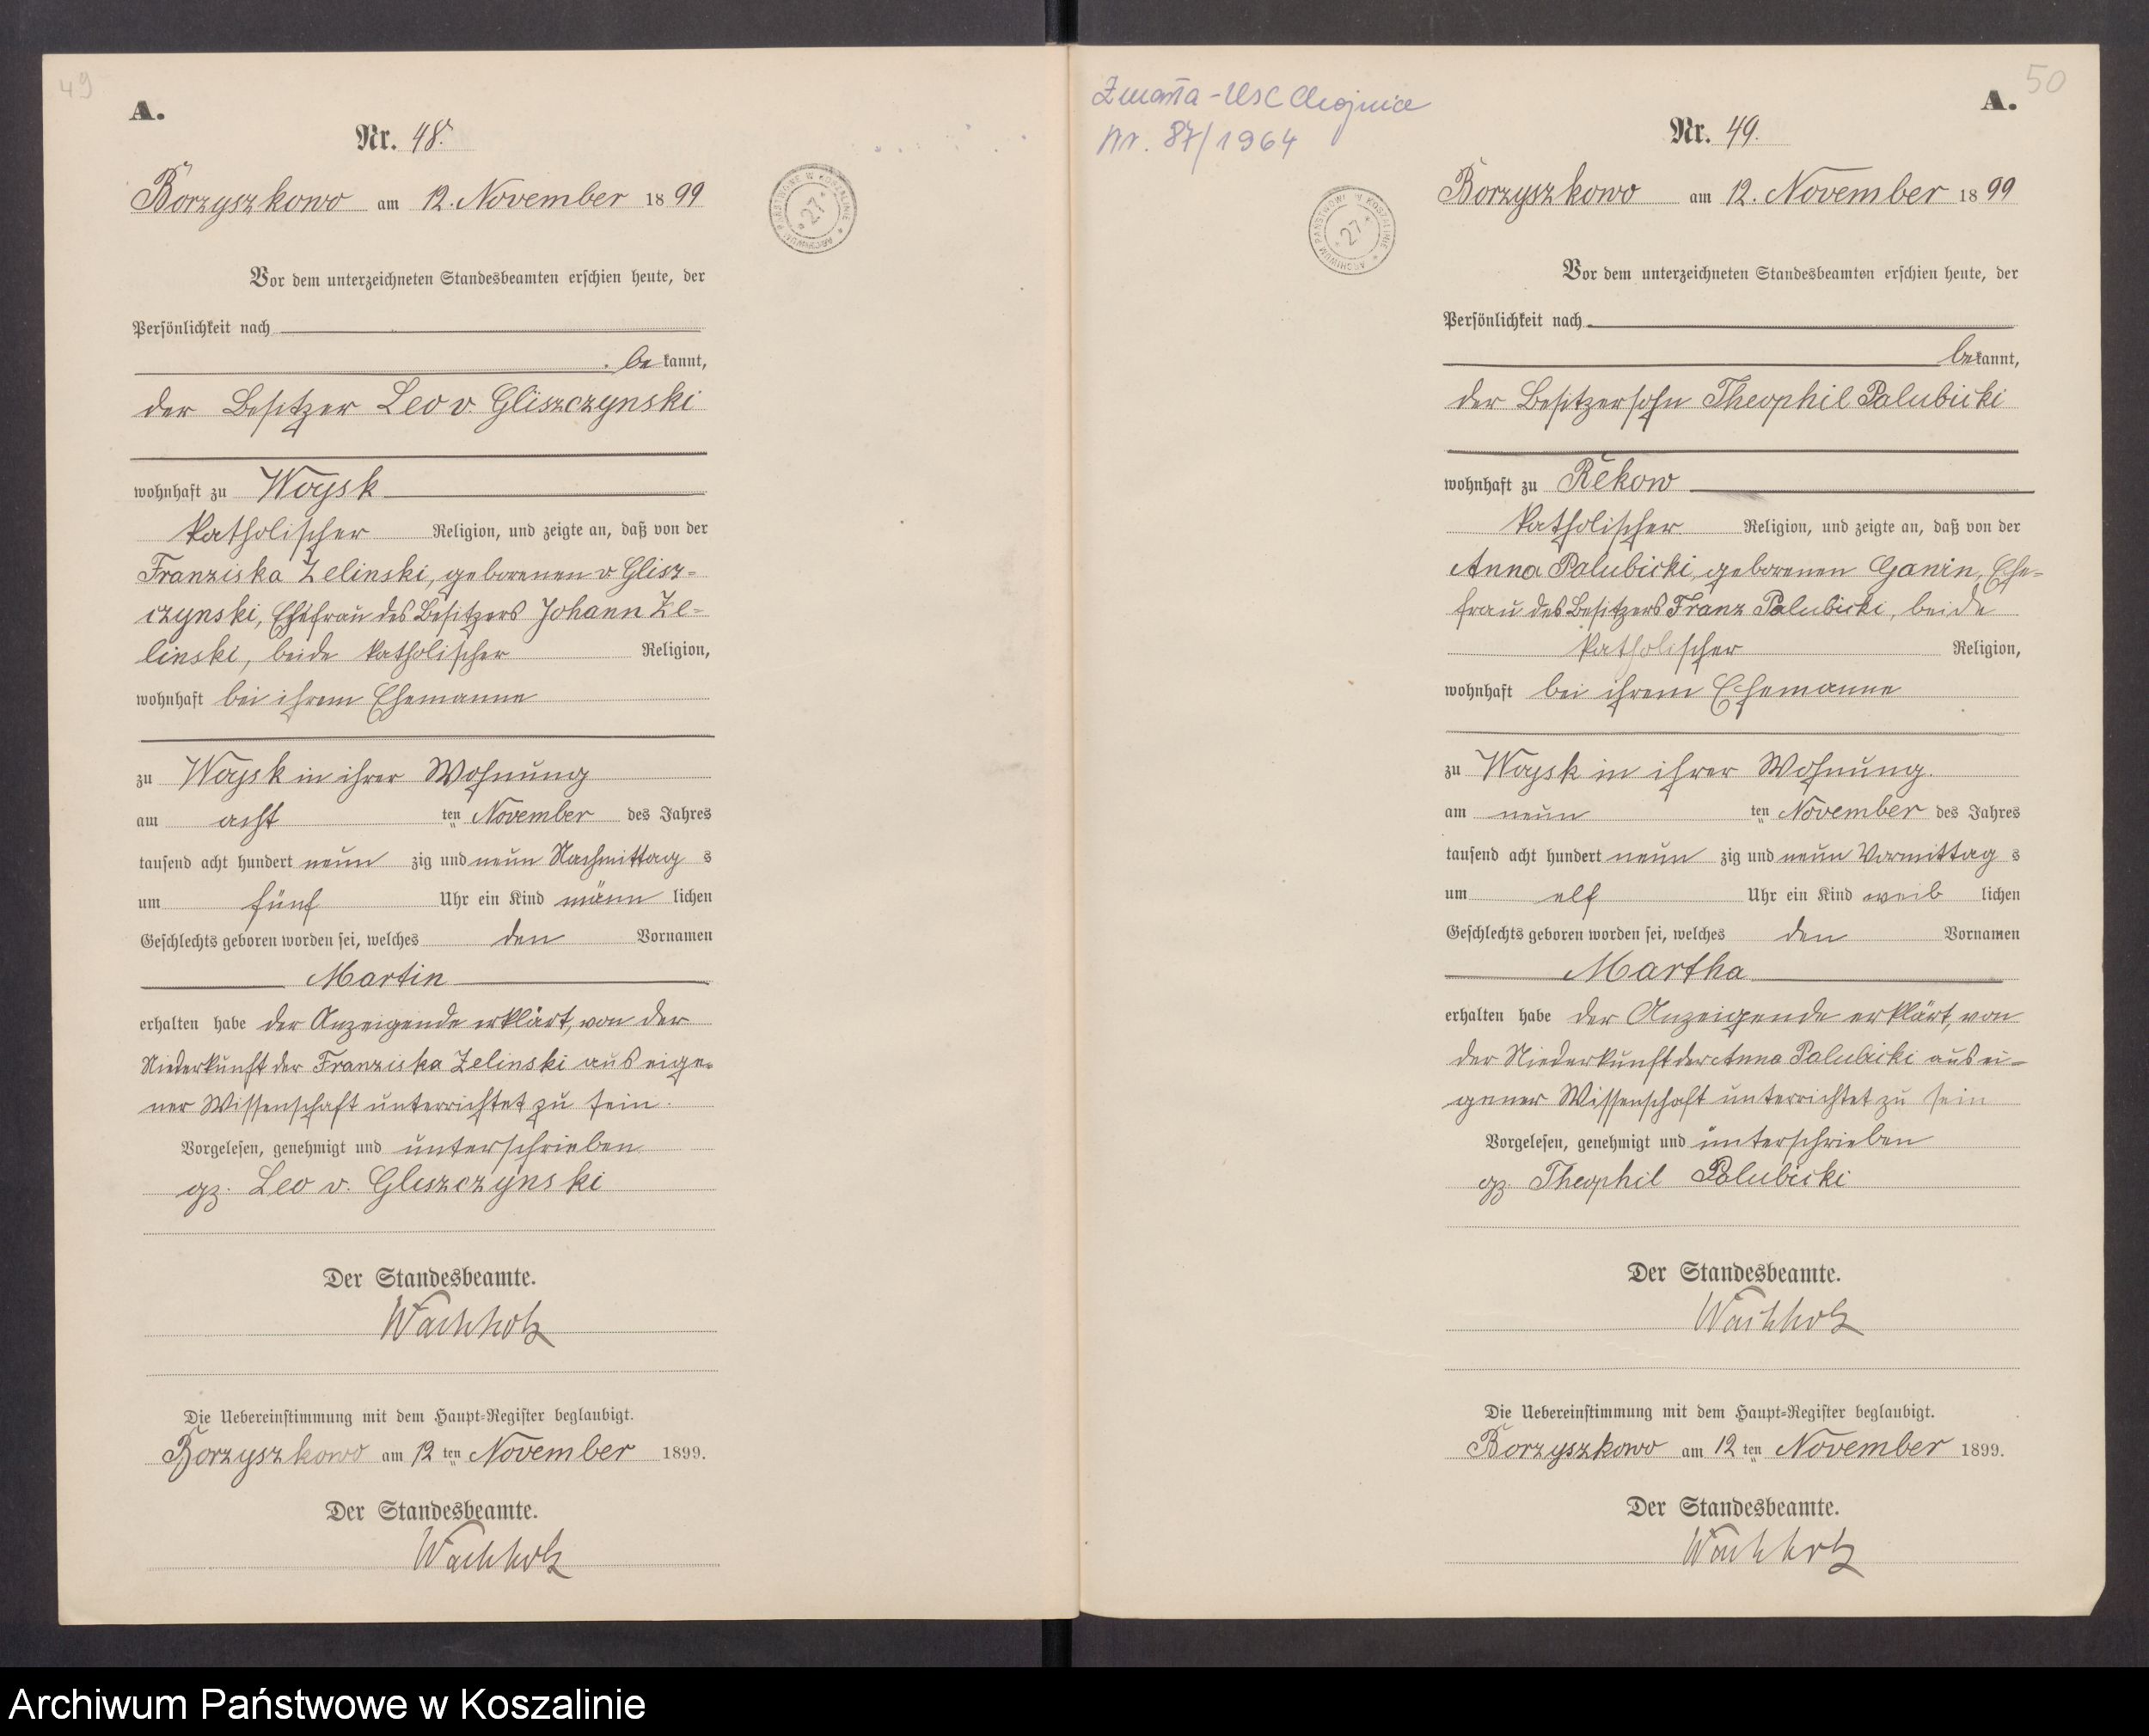 49
A.
Nr. 48.
Borzyszkowo am 12. November 1899
Vor dem unterzeichneten Standesbeamten erschien heute, der
Persönlichkeit nach
bekannt,
der Besitzer Leo v. Gliszczynski
wohnhaft zu Woysk
katholischer Religion, und zeigte an, daß von der
Franziska Zelinski, geborenen v Glisz-
czynski, Ehefrau des Besitzers Johann Ze-
linski, beide katholischer Religion,
wohnhaft bei ihrem Ehemanne
zu Woysk in ihrer Wohnung
am acht ten November des Jahres
tausend acht hundert neun zig und neun Nachmittag s
um fünf Uhr ein Kind männ lichen
Geschlechts geboren worden sei, welches den Vornamen
Martin
erhalten habe der Anzeigende erklärt, von der
Niederkunft der Franziska Zelinski aus eige-
ner Wissenschaft unterrichtet zu sein.
Vorgelesen, genehmigt und unterschrieben
gz. Leo v. Gliszczynski
Der Standesbeamte.
Wachholz
Die Uebereinstimmung mit dem Haupt-Register beglaubigt.
Borzyszkowo am 12 ten November 1899.
Der Standesbeamte.
Wachholz
ARCHIWUM PAŃSTWOWE W KOSZALINIE
* 27 *
50
Zmarła - USC Chojnice
Nr. 87/1964
A.
Nr. 49.
ARCHIWUM PAŃSTWOWE W KOSZALINIE
* 27 *
Borzyszkowo am 12. November 1899
Vor dem unterzeichneten Standesbeamten erschien heute, der
Persönlichkeit nach
bekannt,
der Besitzersohn Theophil Palubicki
wohnhaft zu Rekow
katholischer Religion, und zeigte an, daß von der
Anna Palubicki, geborenen Ganin, Ehe-
frau des Besitzers Franz Palubicki, beide
katholischer Religion,
wohnhaft bei ihrem Ehemanne
zu Woysk in ihrer Wohnung.
am neun ten November des Jahres
tausend acht hundert neun zig und neun Vormittag s
um elf Uhr ein Kind weib lichen
Geschlechts geboren worden sei, welches den Vornamen
Martha
erhalten habe der Anzeigende erklärt, von
der Niederkunft der Anna Palubicki aus ei-
gener Wissenschaft unterrichtet zu sein
Vorgelesen, genehmigt und unterschrieben
gz. Theophil Palubicki
Der Standesbeamte.
Wachholz
Die Uebereinstimmung mit dem Haupt-Register beglaubigt.
Borzyszkowo am 12 ten November 1899.
Der Standesbeamte.
Wachholz
Archiwum Państwowe w Koszalinie